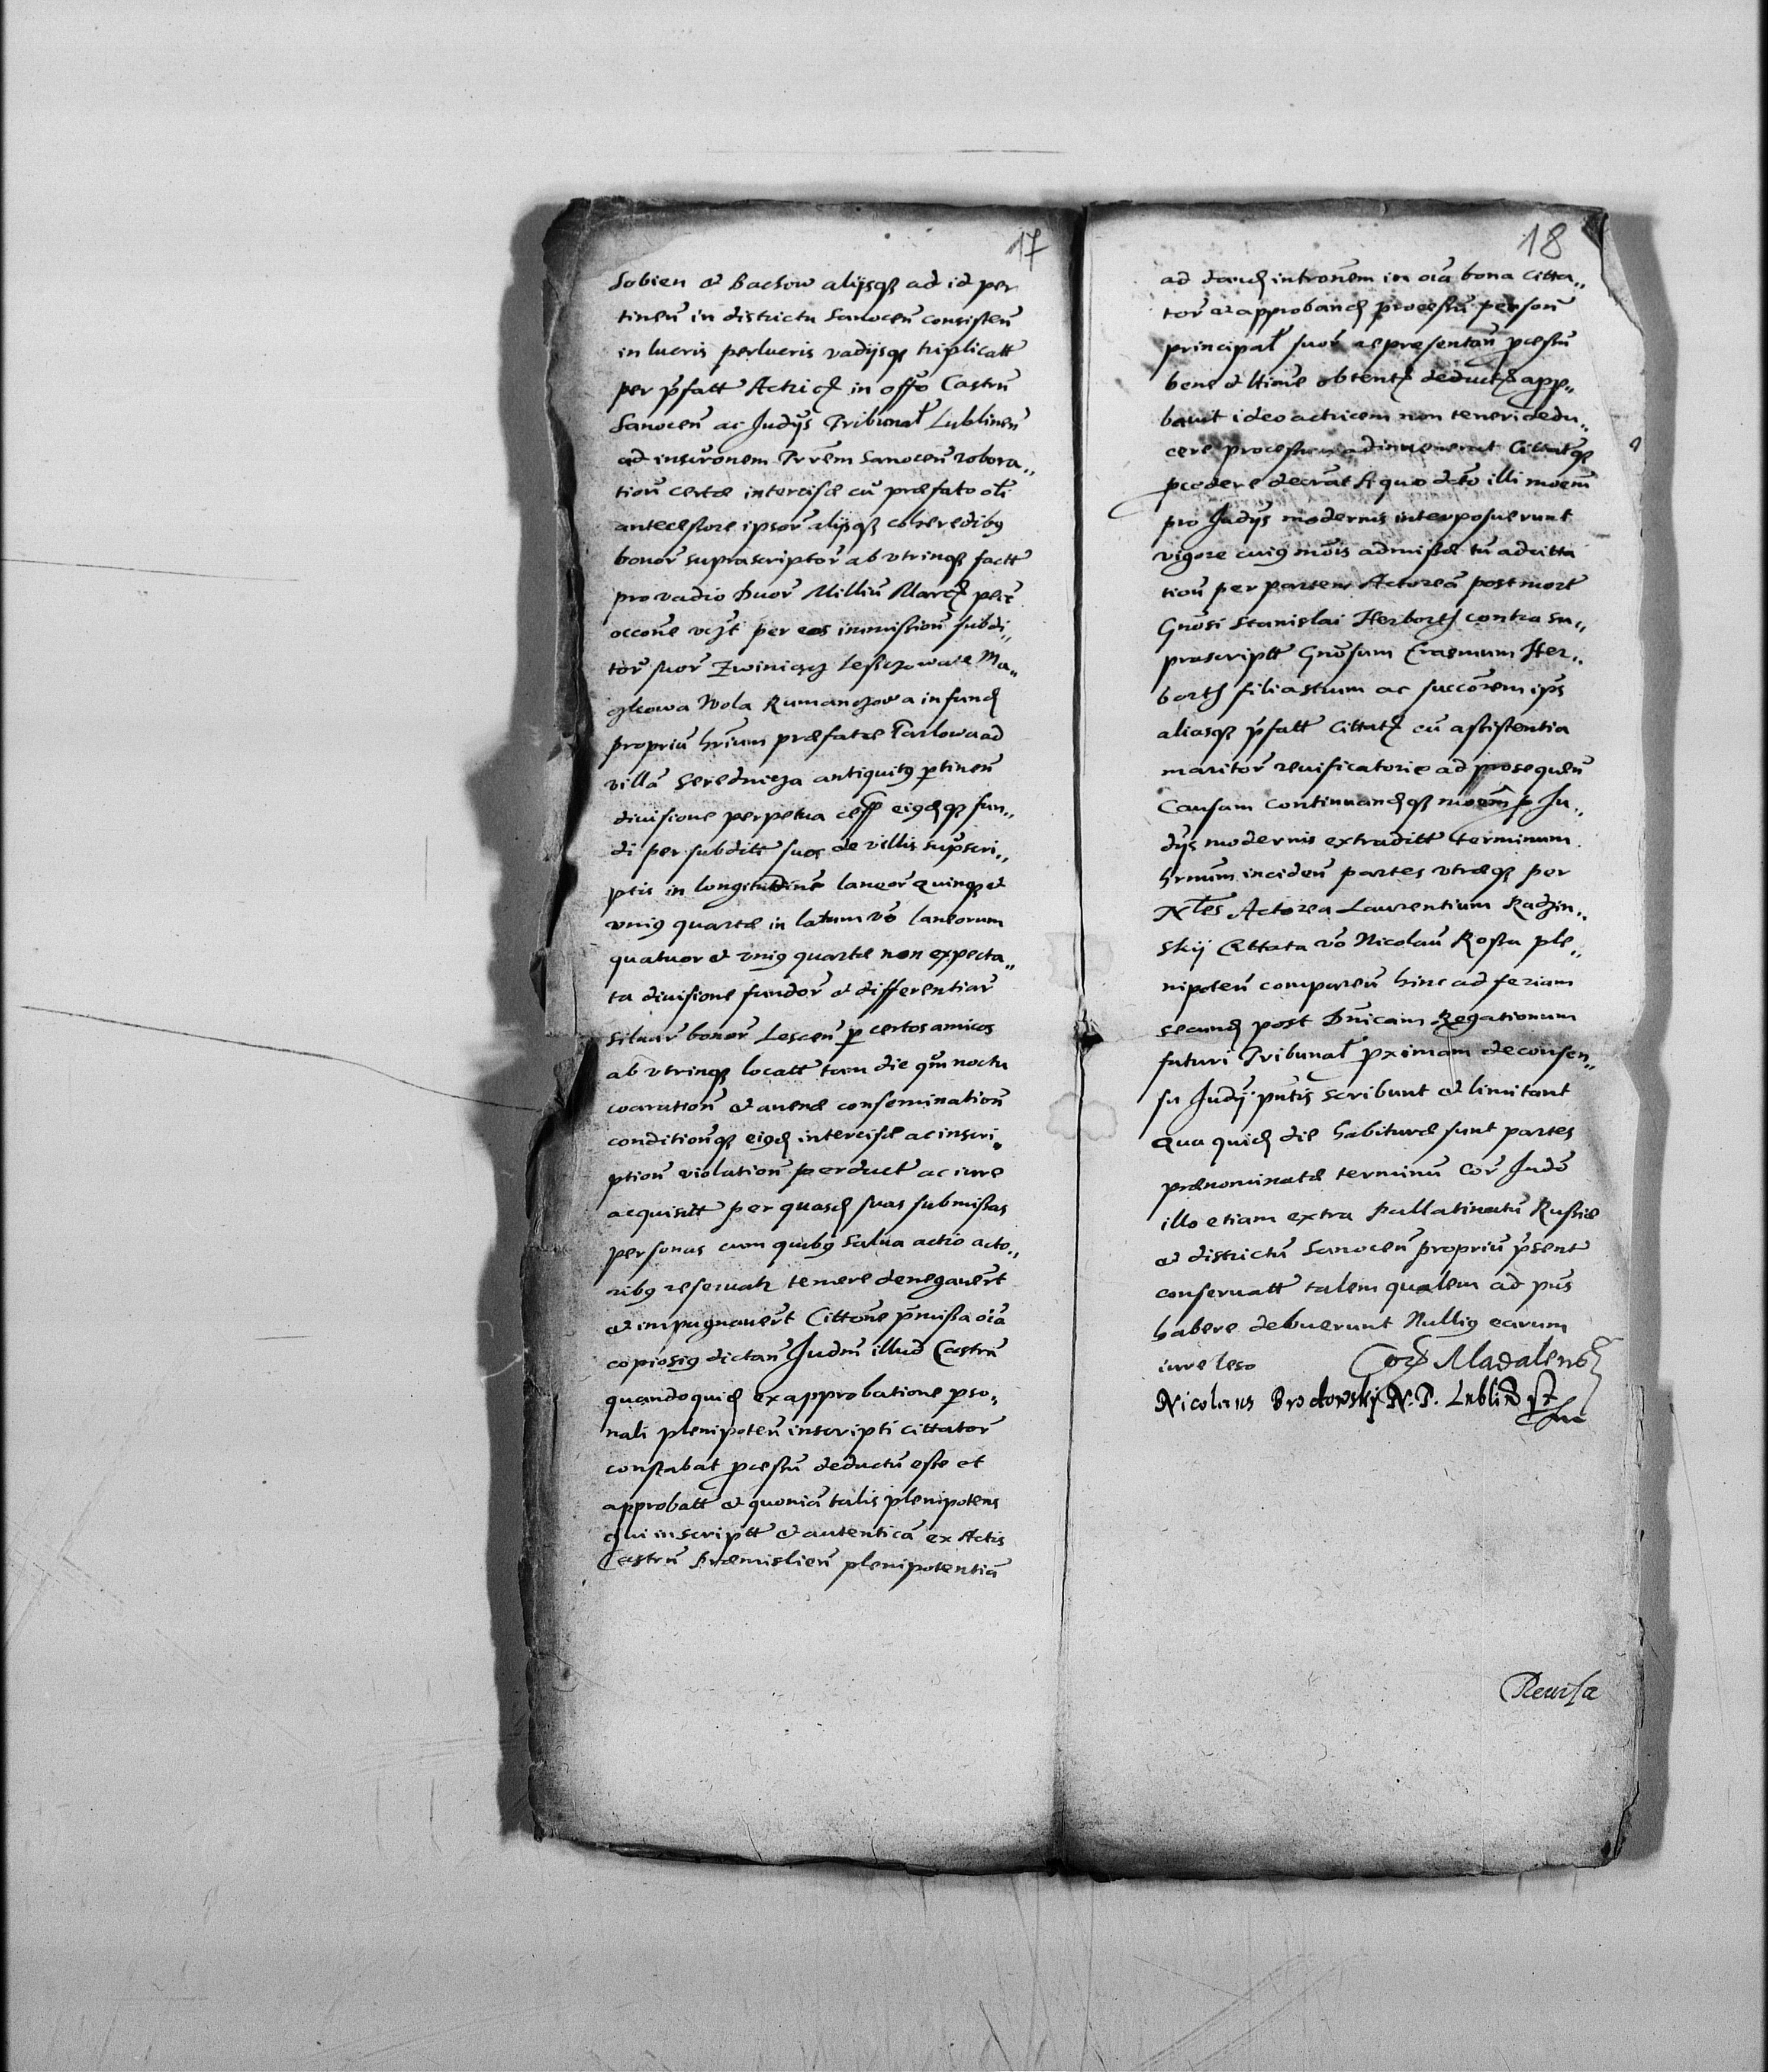 17
Sobien et Bachow alijsq ad id per
tineñ in districtu Sanoceñ consisteñ
in lucris perlucris vadijsq triplicatt
per p̄fatt Actric in offo Castrn̄
Sanoceñ ac Judijs Tribunal Lublineñ
ad inscronem Trrēm Sanoceñ robora„
tioñ certæ intercisæ cū præfato oli
antecessore ipsor̄ alijsq coheredibꝰ
bonor̄ suprascriptor̄ ab vtrinq factt
pro vadio Duor̄ Milliū Marc
occone per eos immissioñ subdi„
tor̄ suor̄ Zwiniacz Lesczowate Ma„
czkowa Wola Rumanczowa in fund
propriū hrīum præfatæ Tarlowa ad
villā Serednicza antiquitꝰ ptineñ
diuisione perpetua eiꝰdq fun„
di per subditt suos de villis sup̄scri„
ptis in longitudine laneor̄ quinq et
vniꝰ quartæ in latum vō laneorum
quatuor et vniꝰ quartæ non expecta„
ta diuisione fundor̄ et differentiar̄
sitnar̄ bonor̄ Lesceñ p certos amicos
ab vtrinq locatt tam die qm̄ noctu
coaratioñ et auenæ conseminatioñ
conditionq eiꝰd intercisæ ac inscri„
ptioñ violatioñ perduct ac iure
acquisitt per quasd suas submissas
personas cum quibꝰ salua actio acto„
ribꝰ reseruatr temere denegauer̄t
et impugnauer̄t Cittone p̄missa oīa
copiosiꝰ dictañ Judm̄ illud Castrn̄
quandoquid ex approbatione pso„
nali plenipoteñ inscripti cittator̄
constabat pcessū deductū esse et
approbatt et quoniā talis plenipotens
qui inscriptt et autenticā ex Actis
Castrn̄ Præmislieñ plenipotentiā
18
ad dand intronem in oīa bona citta„
tor̄ et approband processū persoñ
principal suor̄ repræsentañ pcessū
bene et ltime obtent deduct app„
bauit ideo actricem non teneri dedu„
cere processum adinuenerat Cittatq
pcedere decrāt A quo dcto illi moem
pro Judijs modernis interposuerunt
vigore cuiꝰ mōis admissæ tū adcitta
tioñ per partem Actoreā post mort
Gnosi Stanislai Herborth contra su„
prascriptt Gnosum Erasmum Her„
borth filiastrum ac succorem ips
aliasq p̄fatt Cittat cū assistentia
maritor̄ reuificatorie ad prosequeñ
Causam continuandq moem p Ju„
dijs modernis extraditt terminum
hrnum incideñ partes vtræq per
Nles Actorea Laurentium Radzin„
skij Cittata vō Nicolaū Rossu ple„
nipoteñ compareñ hinc ad feriam
secund post Dnicam Rogationum
futuri Tribunal pximam de consen„
su Judij pn̄tis scribunt et limitant
Qua quid die habituræ sunt partes
prænominatæ terminū cor̄ Judo
illo etiam extra Pallatinatū Russiæ
et districtū Sanoceñ propriū p̄sent
conseruatt talem qualem ad pns
habere debuerunt Nulliꝰ earum
iure leso Madalensk
Nicolaus Brodowskij N. T. Lublin
Reuisa